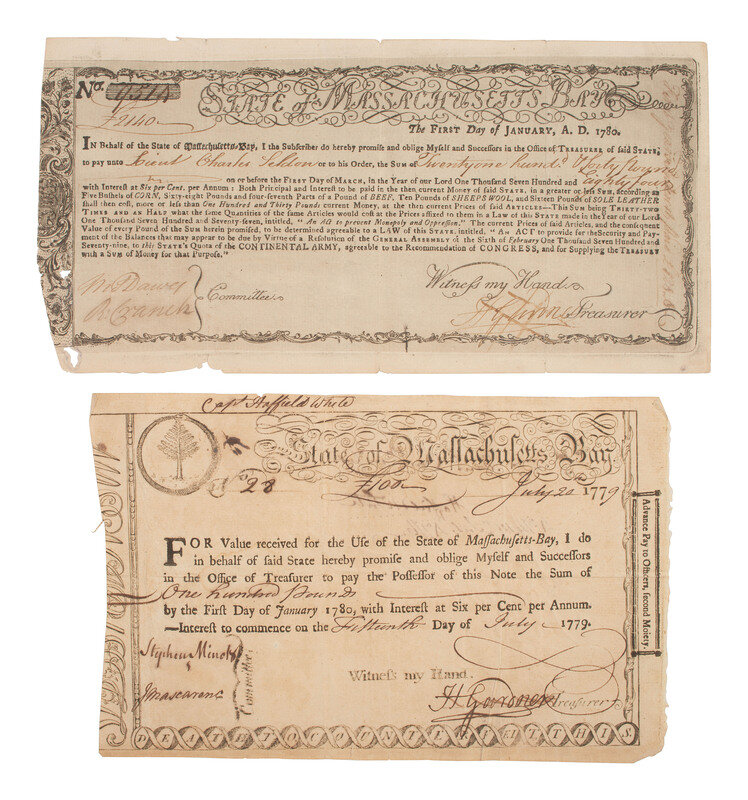 No.
£2140
STATE of MASSACHUSETTS BAY
The FIRST Day of JANUARY, A. D. 1780.
IN Behalf of the State of Massachusetts-Bay, I the Subscriber do hereby promise and oblige Myself and Successors in the Office of TREASURER of said STATE,
to pay unto Lieut Charles or to his Order, the SUM of Twenty one hund.d & forty Pounds
on or before the FIRST Day of MARCH, in the Year of our Lord One Thousand Seven Hundred and eighty four
with Interest at Six per Cent. per Annum: Both Principal and Interest to be paid in the then current Money of said STATE, in a greater or less SUM, according as
Five Bushels of CORN, Sixty-eight Pounds and four-seventh Parts of a Pound of BEEF, Ten Pounds of SHEEPSWOOL, and Sixteen Pounds of SOLE LEATHER
shall then cost, more or less than One Hundred and Thirty Pounds current Money, at the then current Prices of said ARTICLES—This SUM being THIRTY-TWO
TIMES AND AN HALF what the same Quantities of the same Articles would cost at the Prices affixed to them in a Law of this STATE made in the Year of our Lord
One Thousand Seven Hundred and Seventy-seven, intitled, "An ACT to prevent Monopoly and Oppression." The current Prices of said Articles, and the consequent
Value of every Pound of the SUM herein promised, to be determined agreeable to a LAW of this STATE, intitled, "An ACT to provide for the Security and Pay-
ment of the Balances that may appear to be due by Virtue of a Resolution of the GENERAL ASSEMBLY of the Sixth of February One Thousand Seven Hundred and
Seventy-nine, to this STATE's Quota of the CONTINENTAL ARMY, agreeable to the Recommendation of CONGRESS, and for Supplying the TREASURY
with a SUM of Money for that Purpose."
Witness my Hand
Dawes
R Cranch
Committee
Treasurer
Capt Haffield White
State of Massachusetts Bay
No 28 £100 July 20 1779
FOR Value received for the Use of the State of Massachusetts-Bay, I do
in behalf of said State hereby promise and oblige Myself and Successors
in the Office of Treasurer to pay the Possessor of this Note the Sum of
One hundred Pounds
by the First Day of January 1780, with Interest at Six per Cent per Annum.
—Interest to commence on the Fifteenth Day of July 1779.
Stephen Minot
J Mascarene
Committee
Witness my Hand.
H Gardner Treasurer
Advance Pay to Officers, second Moiety.
DEATH TO COUNTERFEIT THIS